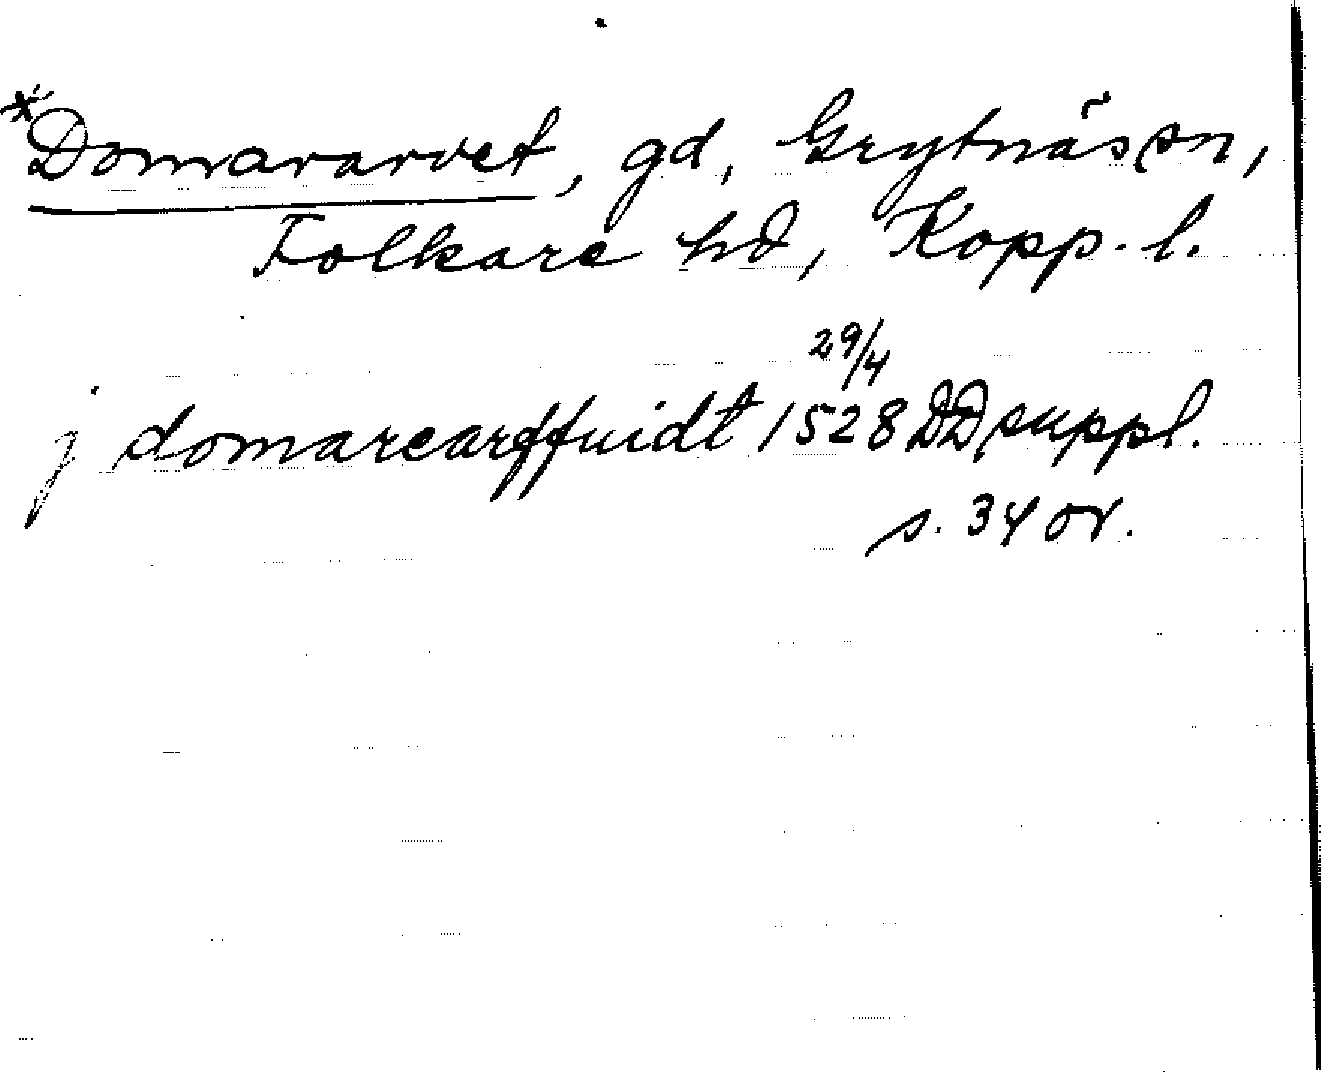 *Domararvet, gd, Grytnäs sn,
Folkare hd, Kopp. l.
29/4
j domarearffuidt 1528 DD suppl.
s. 34 or.